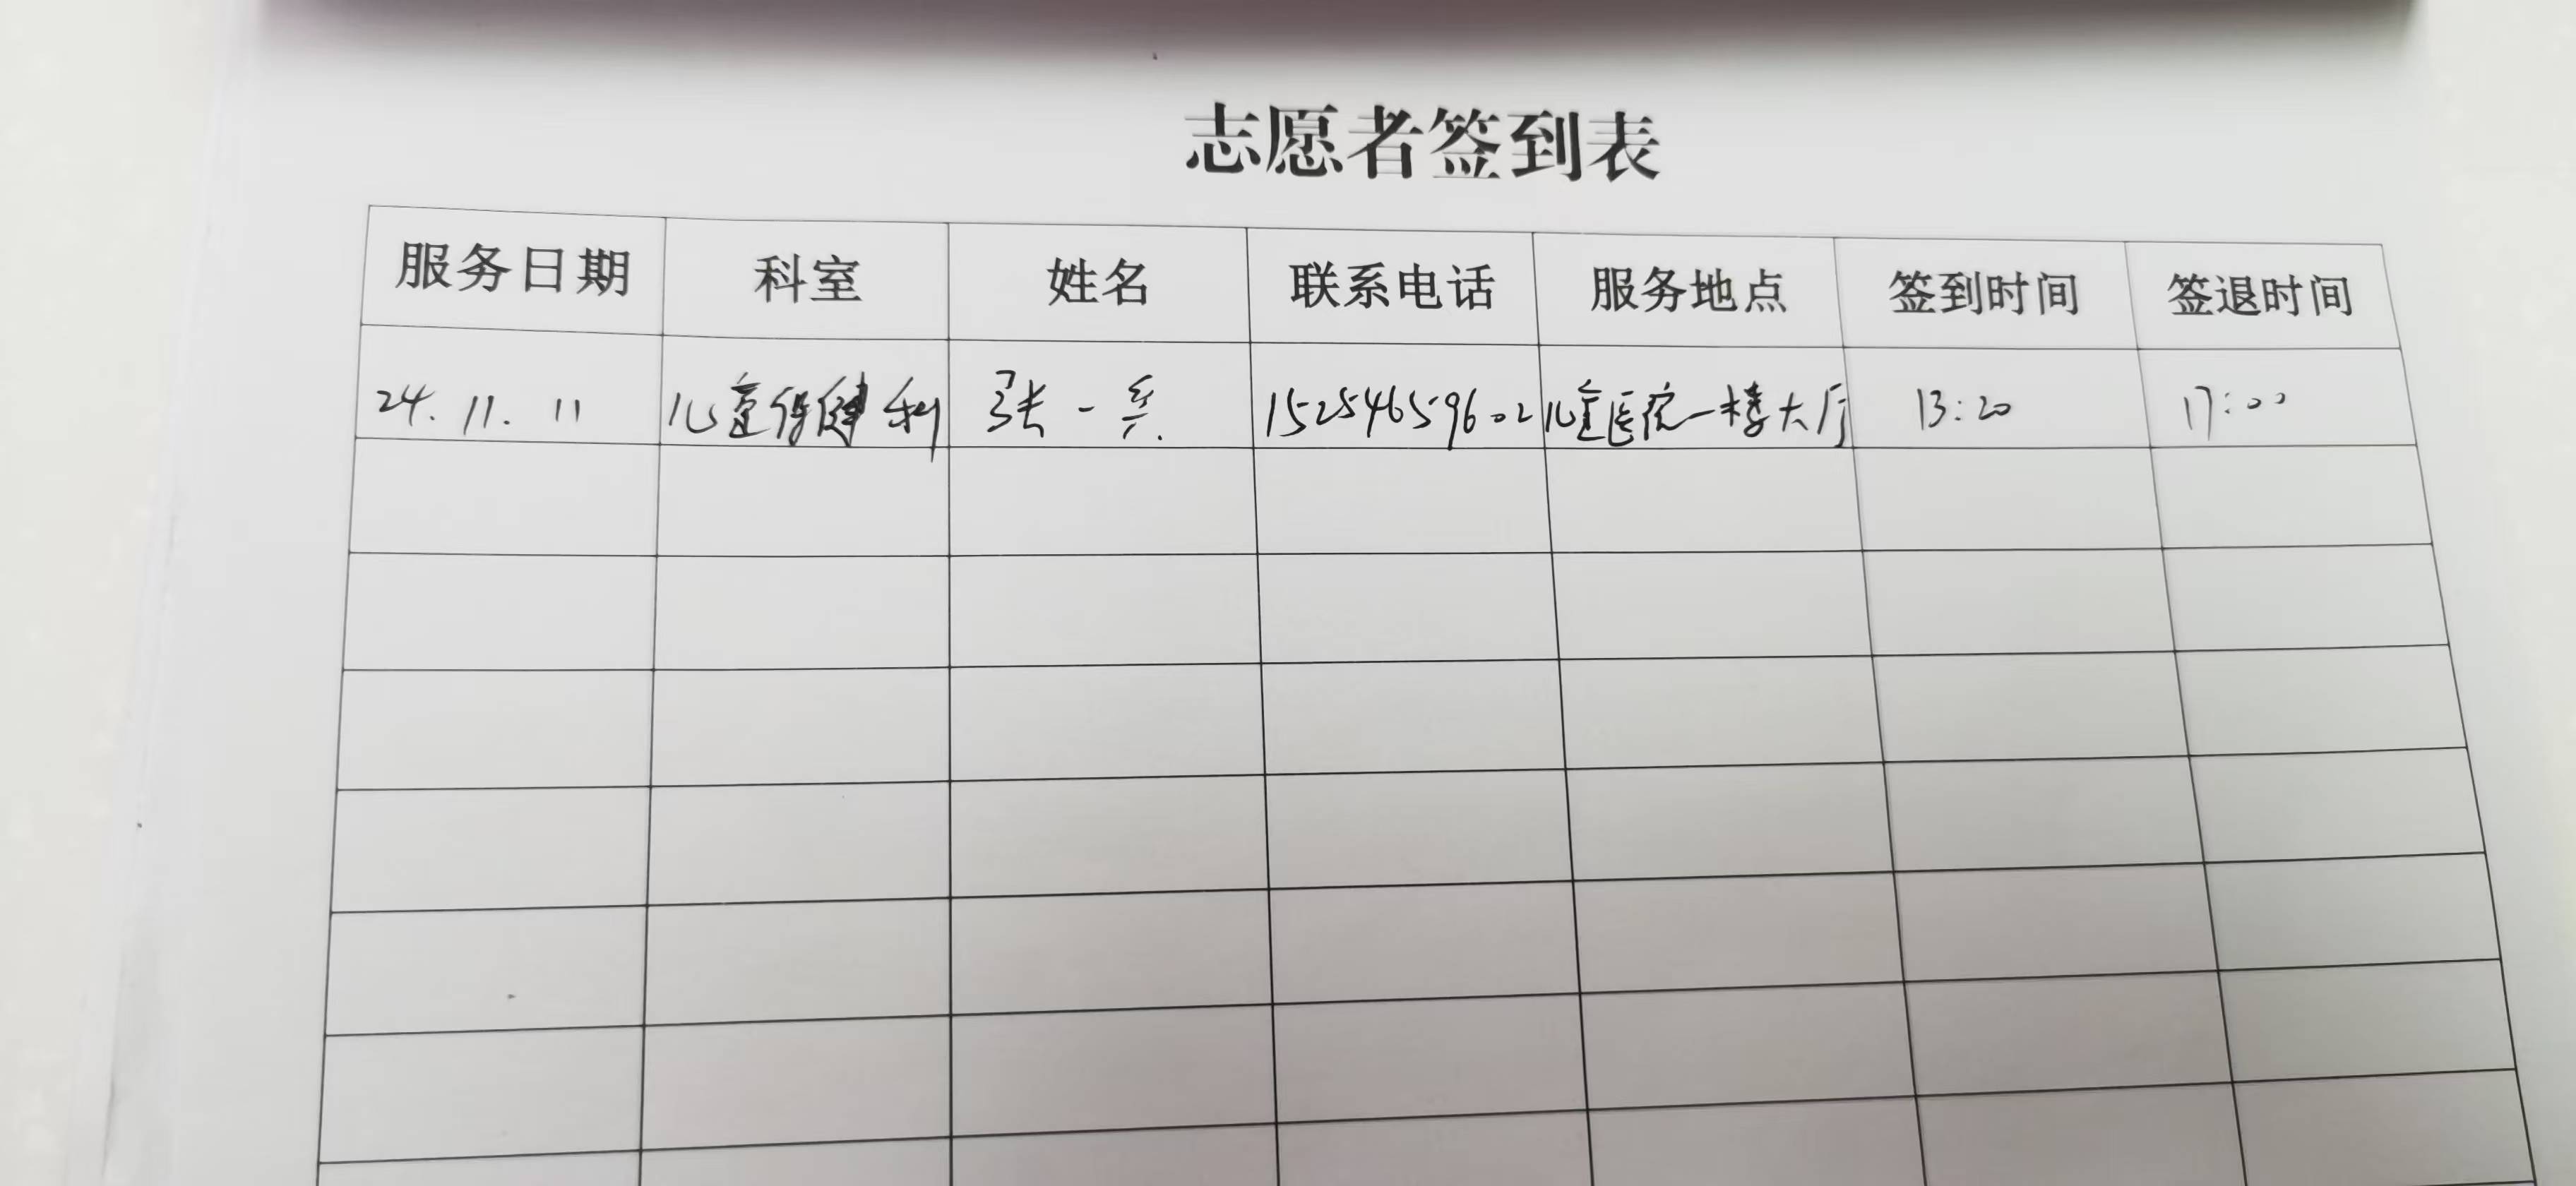 志愿者签到表
服务日期 科室 姓名 联系电话 服务地点 签到时间 签退时间
24.11.11 儿童保健科 张一 15254659602 儿童医院一楼大厅 13:20 17:00